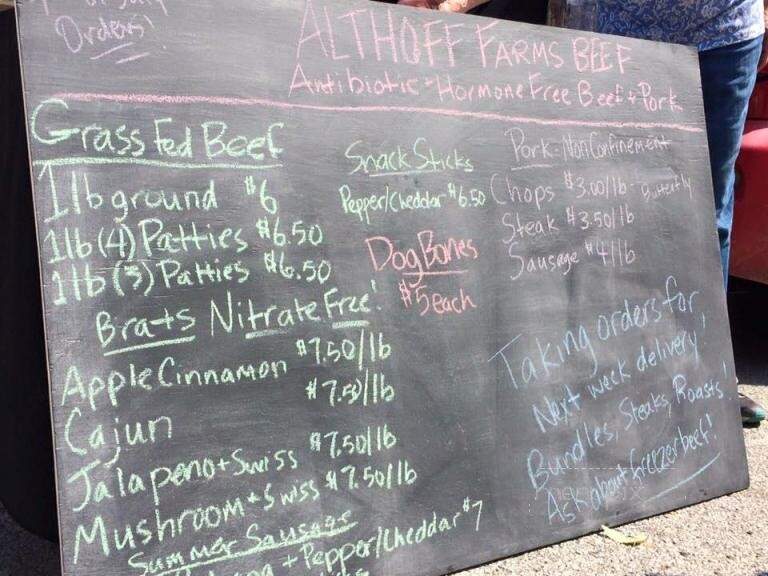 Orders!
ALTHOFF FARMS BEEF
Antibiotic - Hormone Free Beef + Pork
Grass Fed Beef
1 lb ground $6
1lb (4) Patties $6.50
1lb (3) Patties $6.50
Brats Nitrate Free!
Apple Cinnamon $7.50/lb
Cajun $7.50/lb
Jalapeno + Swiss $7.50/lb
Mushroom + Swiss $7.50/lb
Summer Sausage
+ Pepper/Cheddar $7
Snack Sticks
Pepper/Cheddar $6.50
Dog Bones
$5 each
Pork - Non Confinement
Chops $3.00/lb - Butterfly
Steak $3.50/lb
Sausage $4/lb
Taking orders for
Next week delivery!
Bundles, Steaks, Roasts!
Ask about freezer beef!